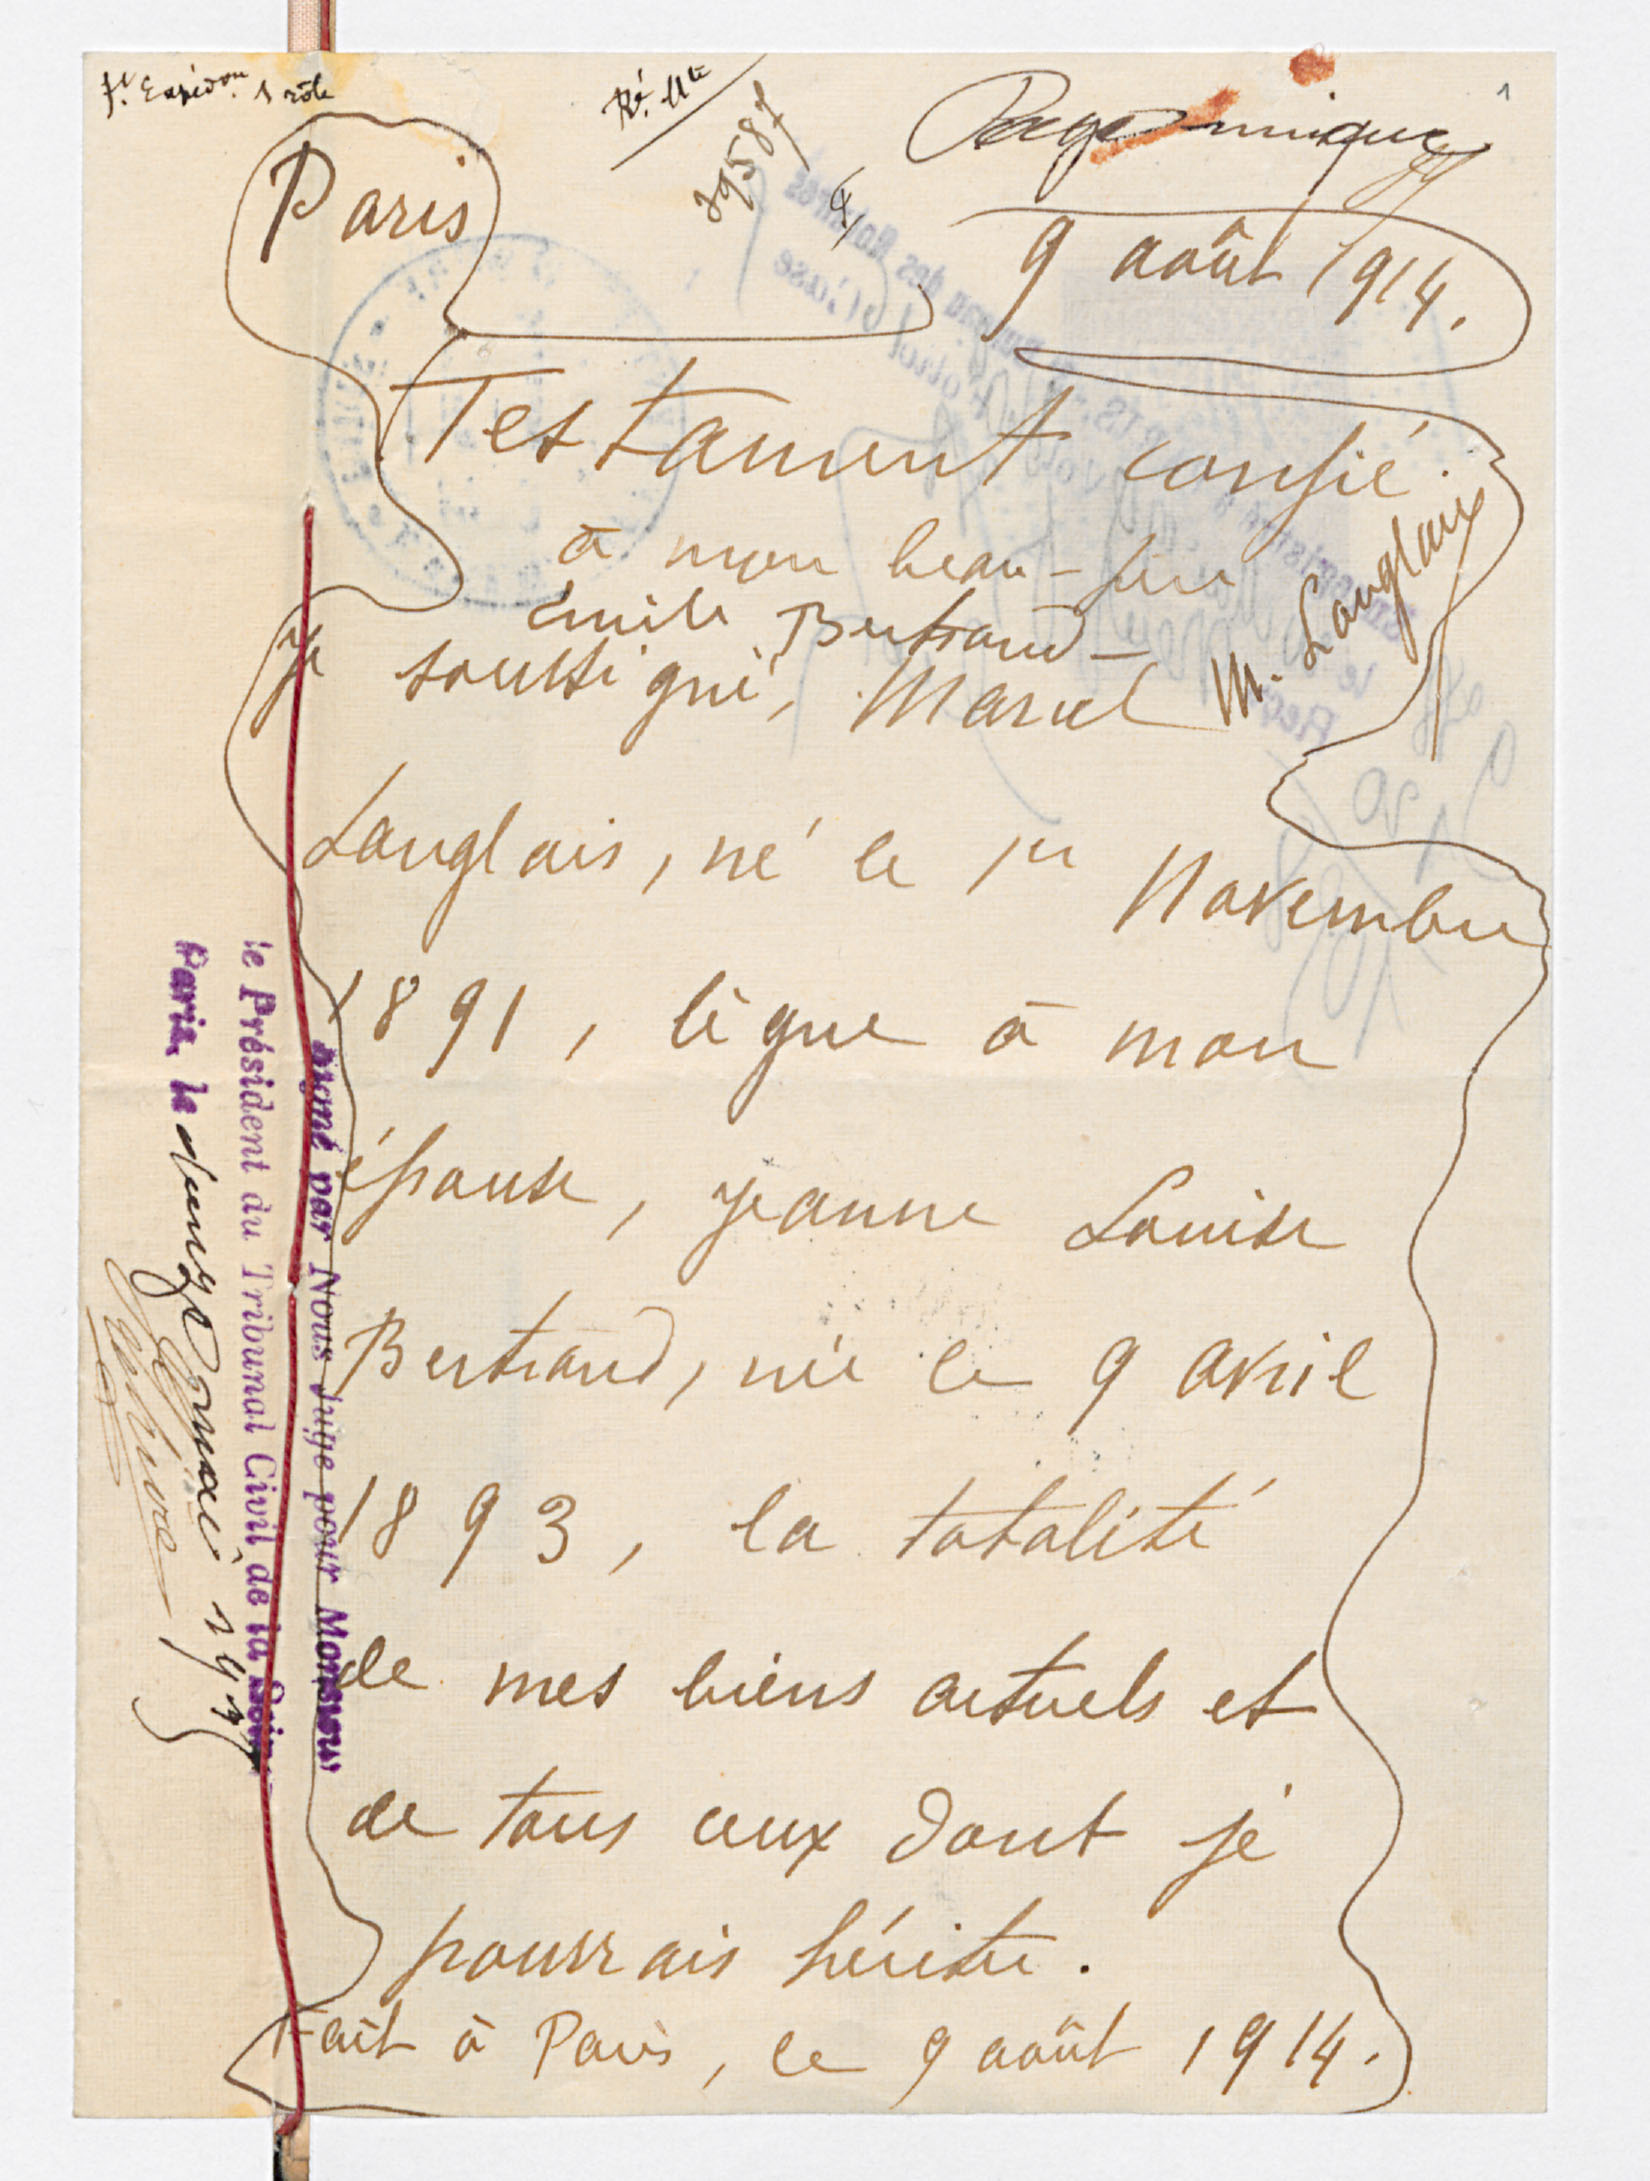 1 rôle
39587
Page unique
1
Paris
9 août 1914.
Testament confié
à mon beau-père
Emile Bertrand
M. Langlais
Je soussigné, Marcel
Langlais, né le 1er Novembre
1891, lègue à mon
épouse, Jeanne Louise
Bertrand, née le 9 avril
1893, la totalité
de mes biens actuels et
de tous ceux dont je
pourrais hériter.
Fait à Paris, le 9 août 1914.
signé par Nous Juge pour Monsieur
le Président du Tribunal Civil de la Seine
Paris, le